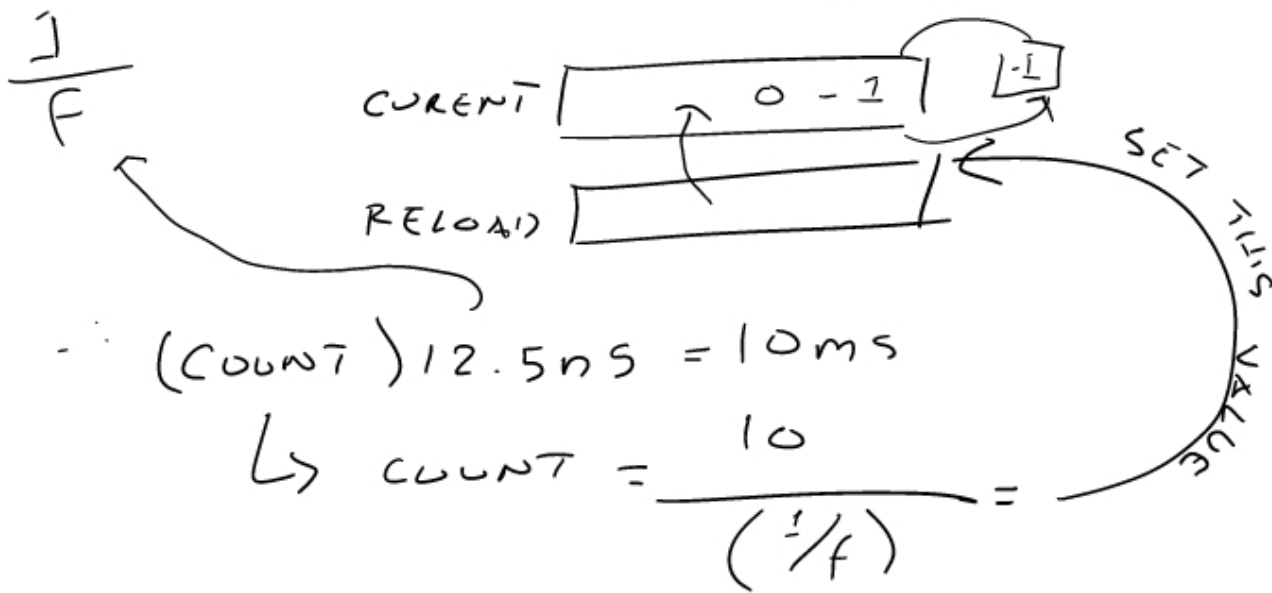 1
F
CURENT 0 - 1 -1
RELOAD
SET THIS VALUE
∴ (COUNT) 12.5nS = 10ms
↳ COUNT = 10 / (1/f) =